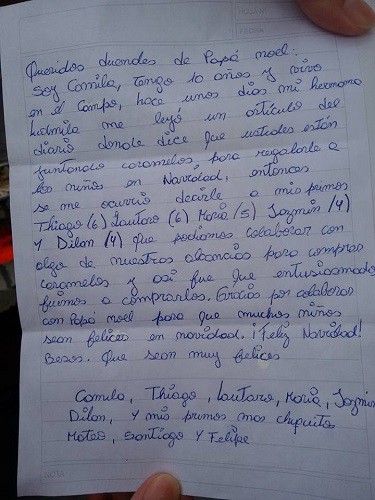 Queridos duendes de Papá noel:
Soy Camila, tengo 10 años y vivo
en el campo, hace unos dias mi hermana
ludmila me leyó un artículo del
diario donde dice que ustedes están
juntando caramelos, para regalarle a
los niños en Navidad, entonces
se me ocurrió decirle a mis primos
Thiago (6) Lautaro (6) María (5) Jazmín (4)
Y Dilan (4) que podíamos colaborar con
algo de nuestras alcancías para comprar
caramelos y así fue que entusiasmados
fuimos a comprarlos. Gracias por colaborar
con Papá noel para que muchos niños
sean felices en navidad. ¡Feliz Navidad!
Besos. Que sean muy felices
Camila, Thiago, Lautaro, María, Jazmin
Dilan, y mis primos mas chiquitos
Mateo, Santiago Y Felipe
NOTA
FECHA